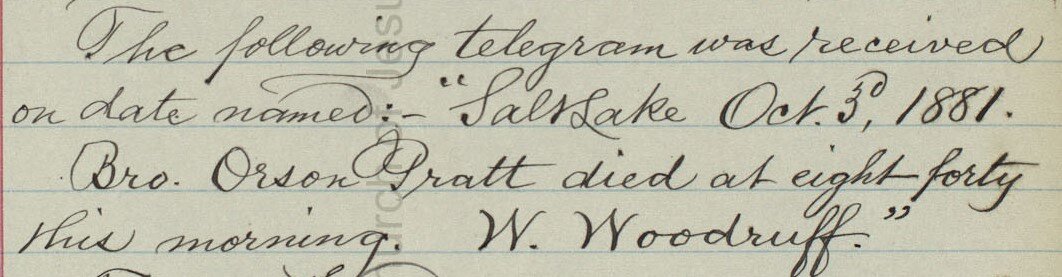 The following telegram was received
on date named:- "Salt Lake Oct. 3d, 1881.
Bro. Orson Pratt died at eight forty
this morning. W. Woodruff."